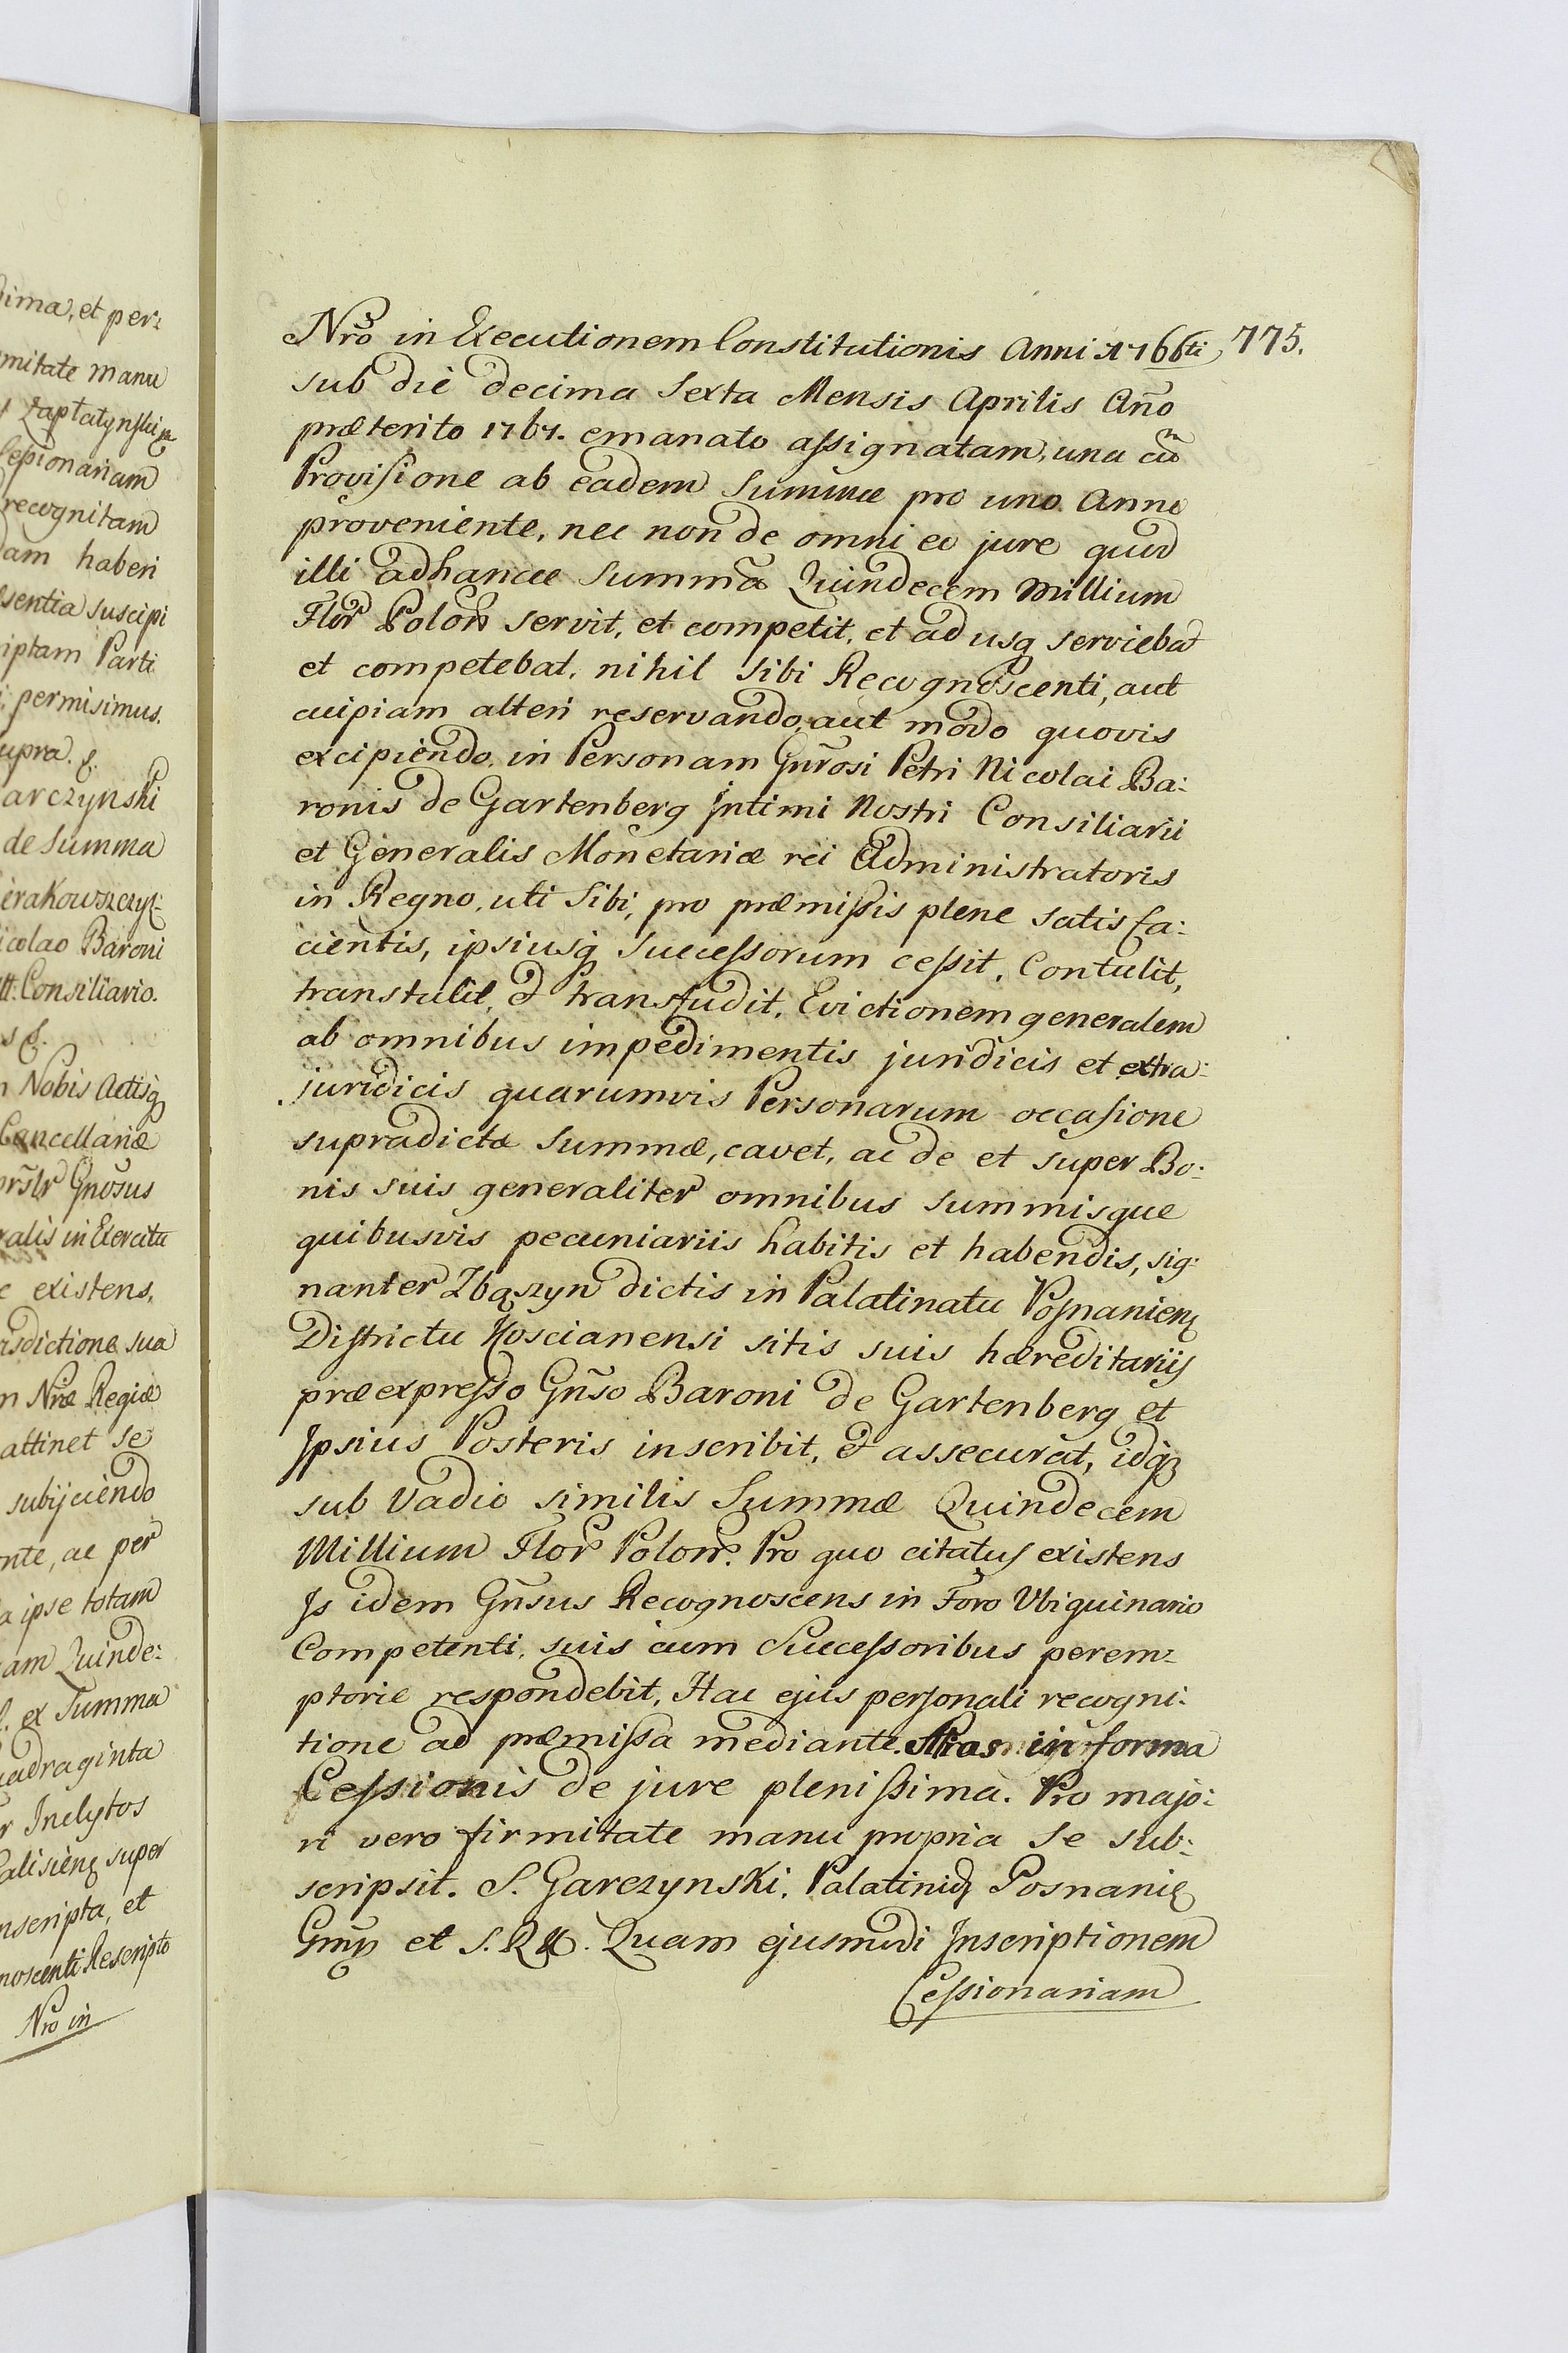 dima, et per:
mitate manu
Zaptatynski
Cessionariam
recognitam
dam haberi
sentia suscipi
riptam Parti
permisimus.
supra. &.
arczynski
de Summa
ierakowszczyz:
icolao Baroni
Consiliario.
s &.
n Nobis Actisq
Cancellariæ
prslr Gnosus
ralis in Exercitu
c existens,
risdictione sua
m Nræ Regiæ
attinet se
subijciendo
nte, ac per
a ipse totam
am Quinde:
. ex Summa
uadraginta
r Inclytos
Calisieng super
nscripta, et
noscenti Rescripto
Nro in
775.
Nro in Executionem Constitutionis Anni 1766ti
sub die decima Sexta Mensis Aprilis Año
præterito 1767. emanato assignatam, una cũ
Provisione ab eadem Summa pro uno Anno
proveniente, nec non de omni eo jure quod
illi ad hance Summã Quindecem Millium
Flor Polon servit, et competit, et ad usq serviebat
et competebat, nihil sibi Recognoscenti, aut
cuipiam alteri reservando, aut modo quovis
excipiendo, in Personam Gnrosi Petri Nicolai Ba:
ronis de Gartenberg Intimi Nostri Consiliarii
et Generalis Monetariæ rei Administratoris
in Regno, uti Sibi, pro præmissis plene satis fa:
cientis, ipsiusq Successorum cessit, Contulit,
transtulit, & transfudit. Evictionem generalem
ab omnibus impedimentis juridicis et extra:
juridicis quarumvis Personarum occasione
supradictæ Summæ, cavet, ac de et super Bo:
nis suis generaliter omnibus summisque
quibusvis pecuniariis habitis et habendis, sig:
nanter Zbąszyn dictis in Palatinatu Posnanieng
Districtu Koscianensi sitis suis hæreditariis
præexpresso Gñso Baroni de Gartenberg et
Ipsius Posteris inscribit, & assecurat, idq
sub Vadio similis Summæ Quindecem
Millium Flor Polon. Pro quo citatus existens
Is idem Gñsus Recognoscens in Foro Ubiquinario
Competenti, suis cum Successoribus perem:
ptorie respondebit, Hac ejus personali recogni:
tione ad præmissa mediante. in forma
Cessionis de jure plenissima. Pro majo:
ri vero firmitate manu propria se sub:
scripsit. S. Garczynski. Palatinid Posnanie
Gmp et S. R. M. Quam ejusmodi Inscriptionem
Cessionariam